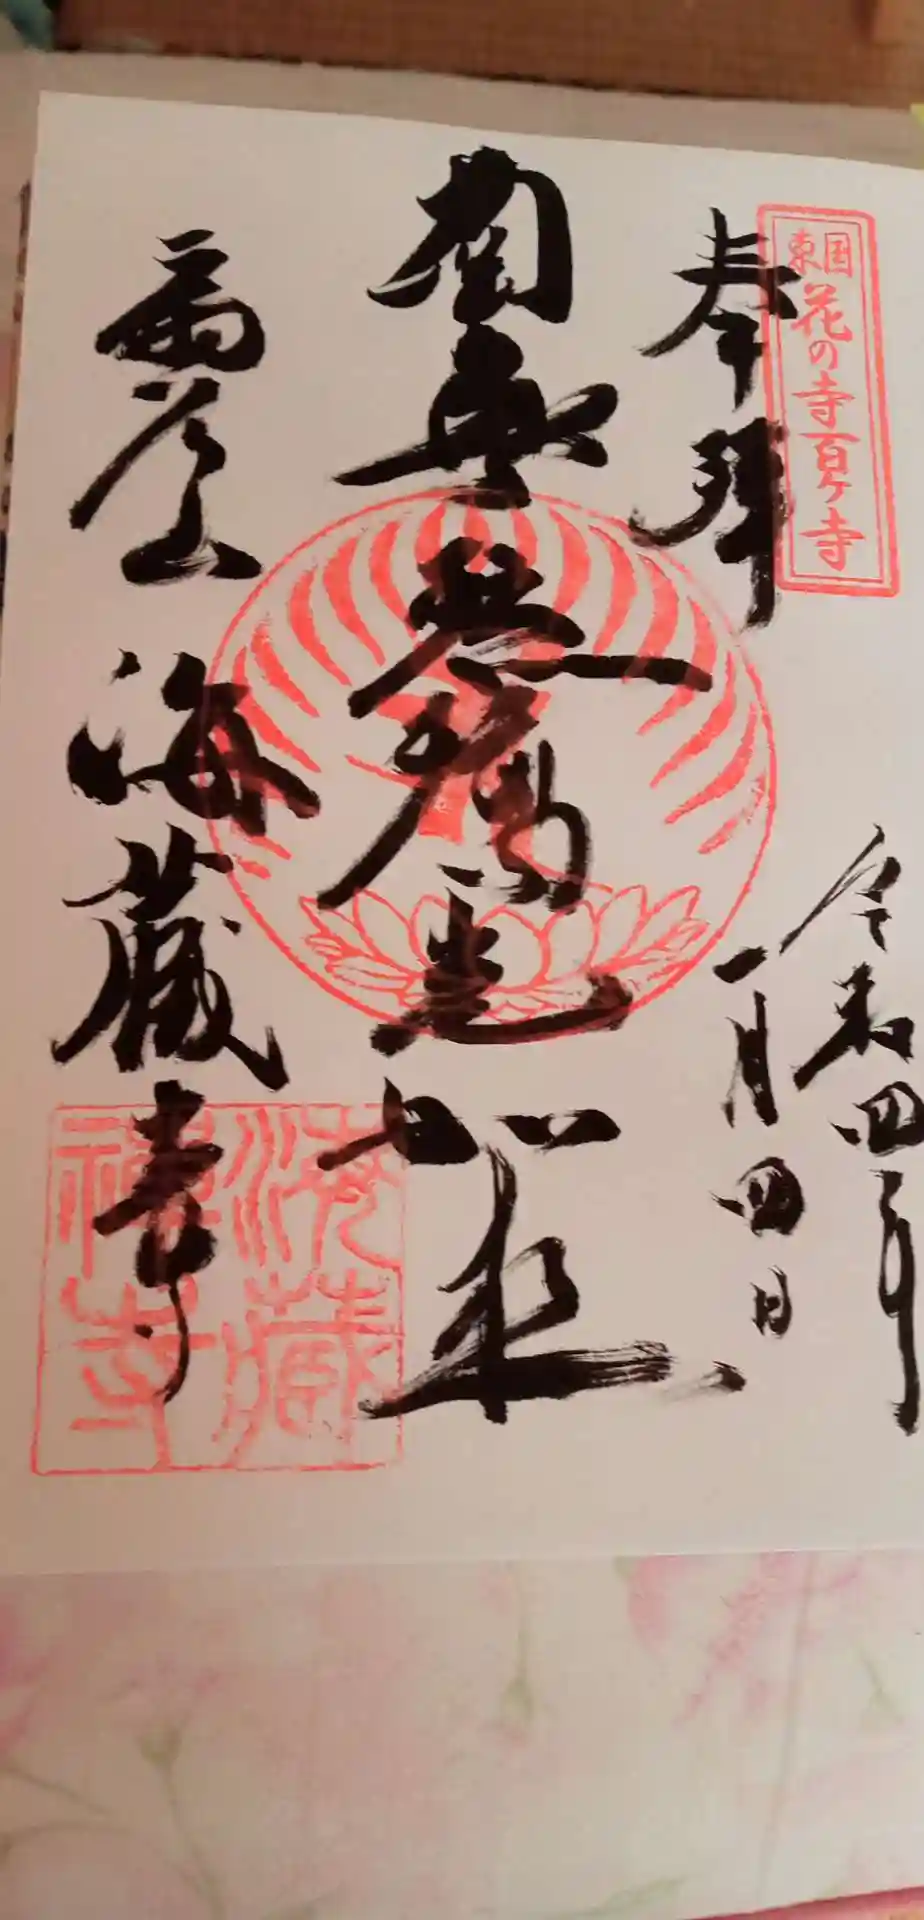 東国花の寺百ヶ寺
奉拝
令和四年
一月四日
南無
光如来
扇谷山 海蔵寺
海藏禅寺